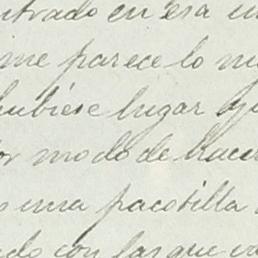 ntrado en esa un
me parece lo m
hubiese lugar
or modo de hacer
una pacotilla
do con las que